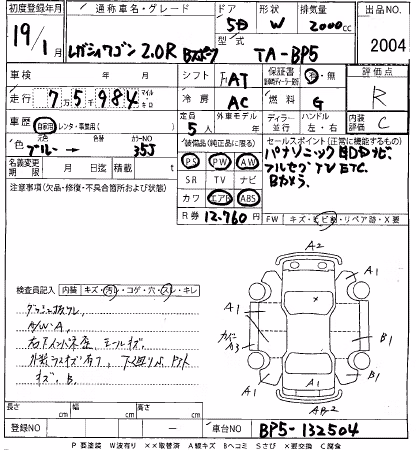 初度登録年月 通称車名・グレード ドア 形状 排気量 出品NO
19/1月 レガシィワゴン 2.0R Bスポーツ 5D W 2000cc
型式 TA-BP5 2004
車検 年 月 シフト FAT 保証書 有・無 評価点
走行 7万5千984 マイル キロ 冷房 AC 燃料 G R
車歴 自家用・レンタ・事業用( ) 定員 5人 ディーラー 並行 ハンドル 左・右 内装 C
色 ブルー → 色替 カラーNO 35J 装備品(純正品に限る) セールスポイント(正常に機能するもの)
名義変更期限 月 日 迄 積載 t
PS PW AW パナソニックHDDナビ
SR TV ナビ フルセグTV ETC
注意事項(欠品・修復・不具合箇所および状態) カワ エアB ABS Bカメラ
R券 12,760円 FW キズ・ヒビ割・リペア跡・X要
検査員記入 内装 キズ・汚レ・コゲ・穴・スレ・キレ
A2
A1
A1
カバー A3
B1
A1
A1
B1
AB-2
A/W A
長さ cm 幅 cm 高さ cm
登録NO 車台NO BP5-132504
P 要塗装 W波有り ××取替済 A線キズ Bヘコミ Sさび ×要交換 C腐食